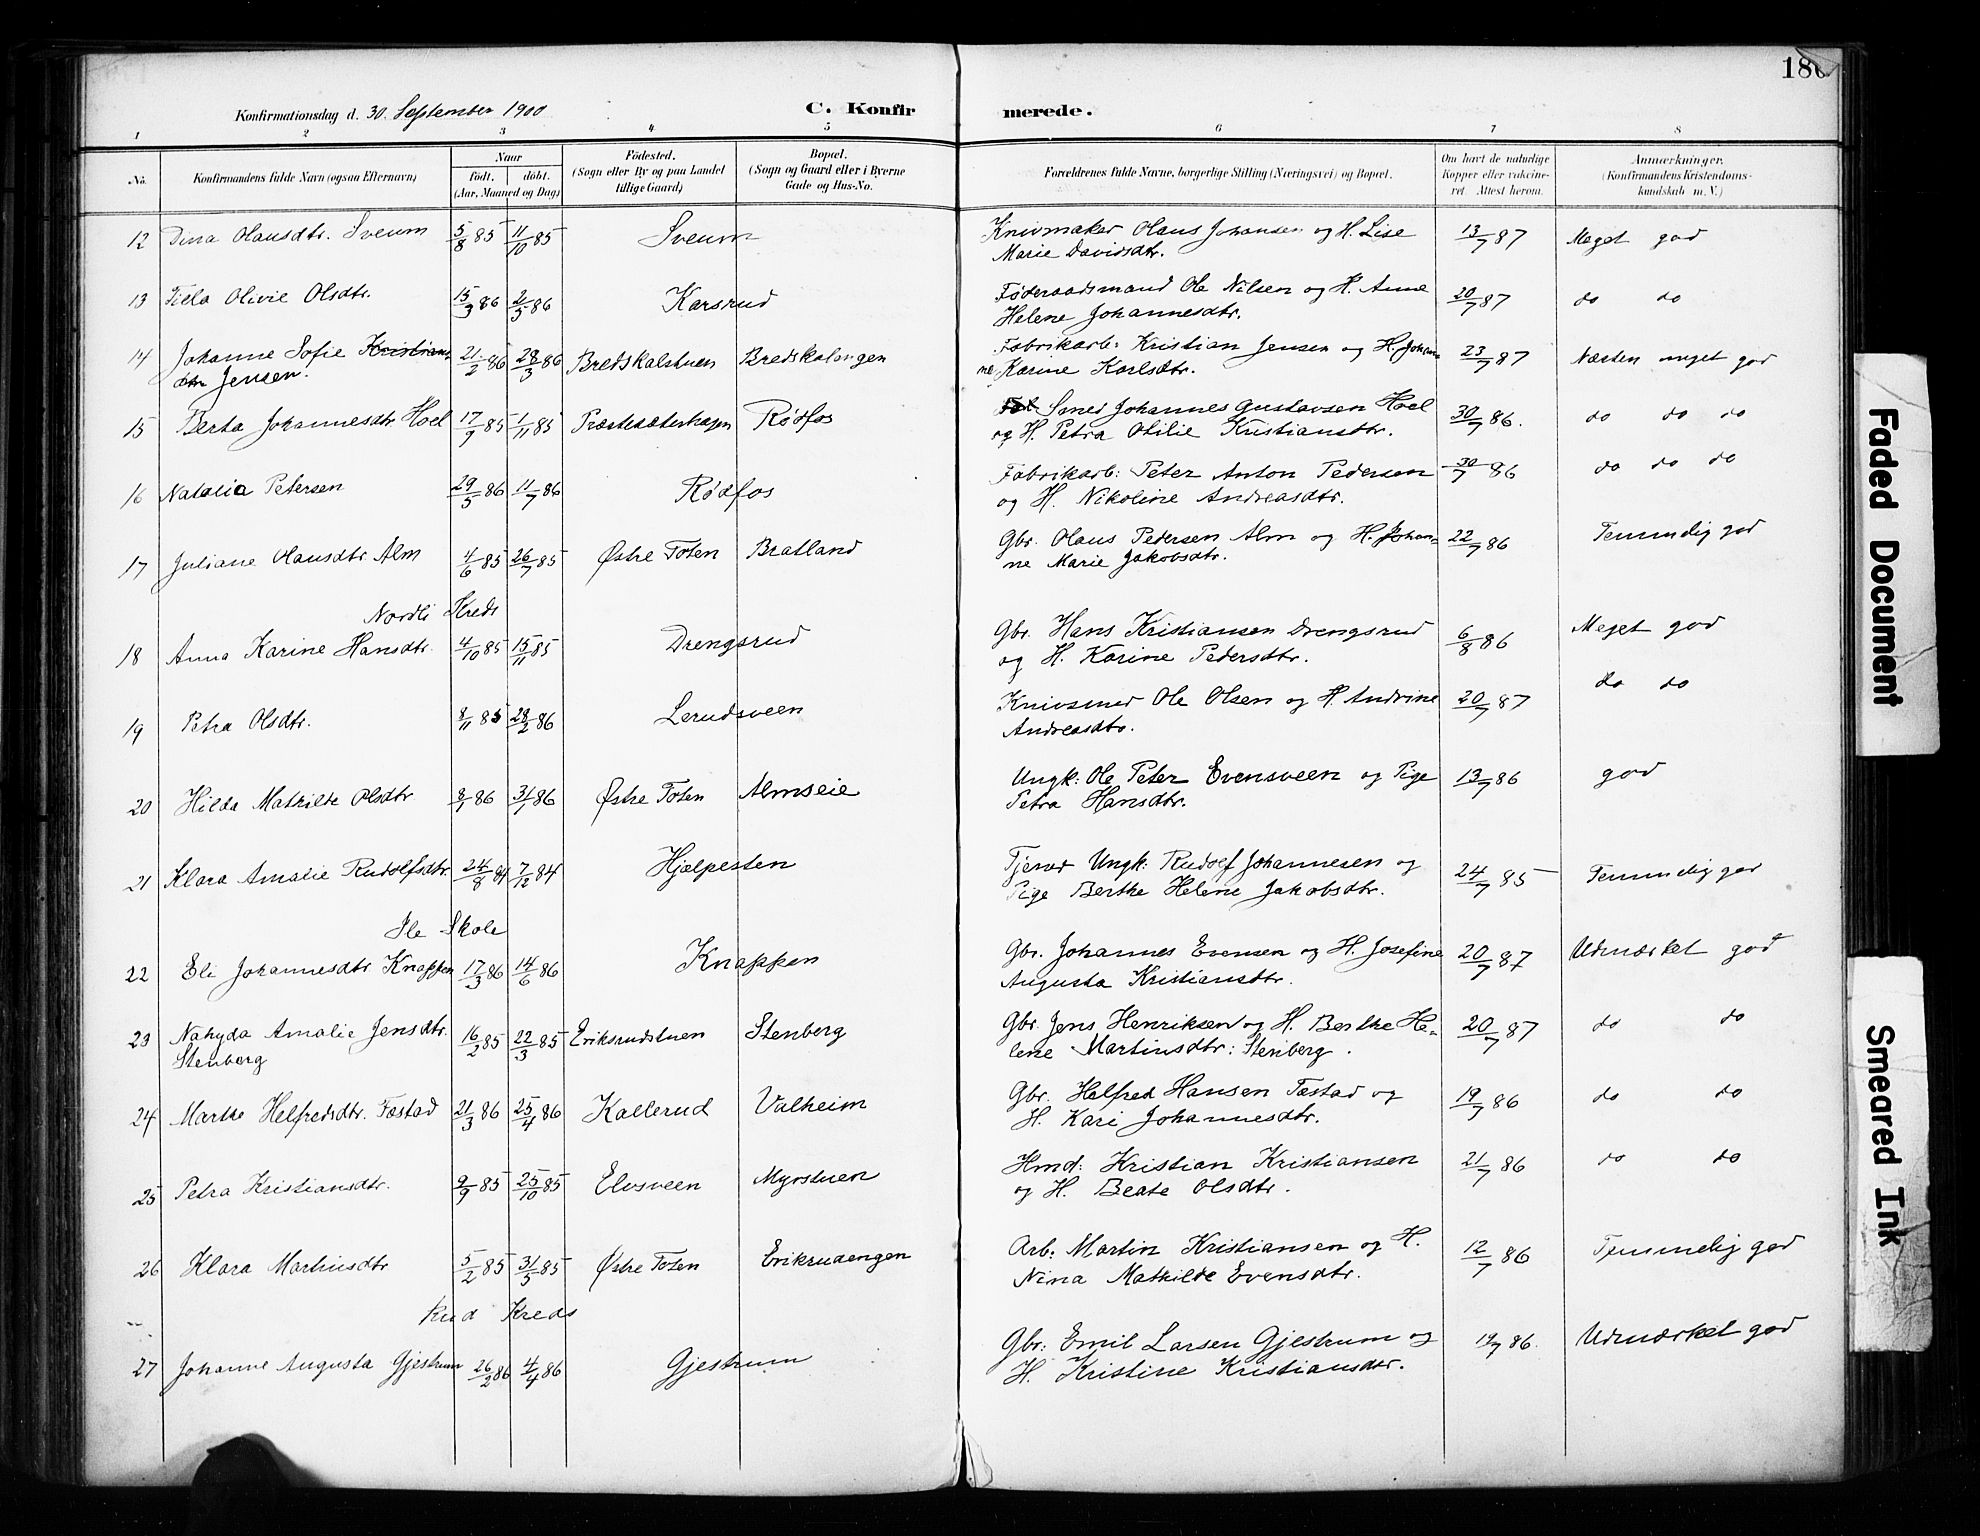 186
Konfirmationsdag d. 30. September 1900 C. Konfirmerede.
1 2 3 4 5 6 7 8
No. Konfirmandens fulde Navn (ogsaa Efternavn) Naar født. døbt. (Aar, Maaned og Dag) Fødested. (Sogn eller By og paa Landet tillige Gaard) Bopæl. (Sogn og Gaard eller i Byerne Gade og Hus-No. Forældrenes fulde Navne, borgerlige Stilling (Næringsvei) og Bopæl. Om havt de naturlige Kopper eller vakcineret. Attest herom. Anmærkninger. (Konfirmandens Kristendomskundskab m. V.)
12 Dina Olausdtr. Sveum 5/8 85 11/10 85 Sveum Knivmaker Olaus Johansen og H. Lise 13/7 87 Meget god
Marie Davidsdtr.
13 Olivie Olsdtr. 15/3 86 2/5 86 Karsrud Føderaadsmand Ole Nilsen og H. Anne 20/7 87 do do
Helene Johannesdtr.
14 Johanne Sofie Kristians 21/2 86 28/3 86 Bredskalstuen Bredskalengen Fabrikarb: Kristian Jensen og H. Johan 23/7 87 Næsten meget god
dtr Jensen. ne Karine Karlsdtr.
15 Berta Johannesdtr Hoel 17/9 85 1/11 85 Præstesæterhagen Rødfos Smed Johannes Gustavsen Hoel 30/7 86. do do do
og H. Petra Otilie Kristiansdtr.
16 Natalia Petersen 29/5 86 11/7 86 Rødfos Fabrikarb: Peter Anton Pedersen 30/7 86 do do do
og H. Nikoline Andreasdtr.
17 Juliane Olausdtr Alm 4/6 85 26/7 85 Østre Toten Bratland Gbr. Olaus Pedersen Alm og H. Johan- 22/7 86 Temmelig god
ne Marie Jakobsdtr.
Nordli Kreds
18 Anna Karine Hansdtr. 4/10 85 15/11 85 Drengsrud Gbr. Hans Kristiansen Drengsrud 6/8 86 Meget god
og H. Karine Pedersdtr.
19 Petra Olsdtr. 8/11 85 28/2 86 Lerudsveen Knivsmed Ole Olsen og H. Andrine 20/7 87 do do
Andreasdtr.
20 Hilda Mathilde Olsdtr 8/1 86 31/1 86 Østre Toten Almseie Ungk: Ole Peter Evensveen og Pige 13/7 86 god
Petra Hansdtr.
21 Klara Amalie Rudolfsdtr. 24/8 84 7/12 84 Hjelpesten Tjener Ungk: Rudolf Johannesen og 24/7 85 Temmelig god
Pige Berthe Helene Jakobsdtr.
Ile Skole
22 Eli Johannesdtr Knappen 17/3 86 14/6 86 Knappen Gbr. Johannes Evensen og H. Josefine 20/7 87 Udmærket god
Augusta Kristiansdtr.
23 Nahyda Amalie Jensdtr. 16/2 85 22/3 85 Eriksrudstuen Stenberg Gbr. Jens Henriksen og H. Berthe He- 20/7 87 do do
Stenberg lene Martinsdtr: Stenberg.
24 Marthe Helfredsdtr. Fæstad 21/3 86 25/4 86 Kallerud Valheim Gbr. Helfred Hansen Fæstad og 19/7 86 do do
H. Kari Johannesdtr.
25 Petra Kristiansdtr. 9/9 85 25/10 85 Elvsveen Myrstuen Hmd: Kristian Kristiansen 21/7 86 do do
og H. Beate Olsdtr.
26 Klara Martinsdtr 5/2 85 31/5 85 Østre Toten Erikrudengen Arb: Martin Kristiansen og H. 12/7 86 Temmelig god
Nina Mathilde Evensdtr.
Rud Kreds
27 Johanne Augusta Gjestrum 26/2 86 4/4 86 Gjestrum Gbr: Emil Larsen Gjestrum og 19/7 86. Udmærket god
H. Kristine Kristiansdtr.
Faded Document
Smeared Ink